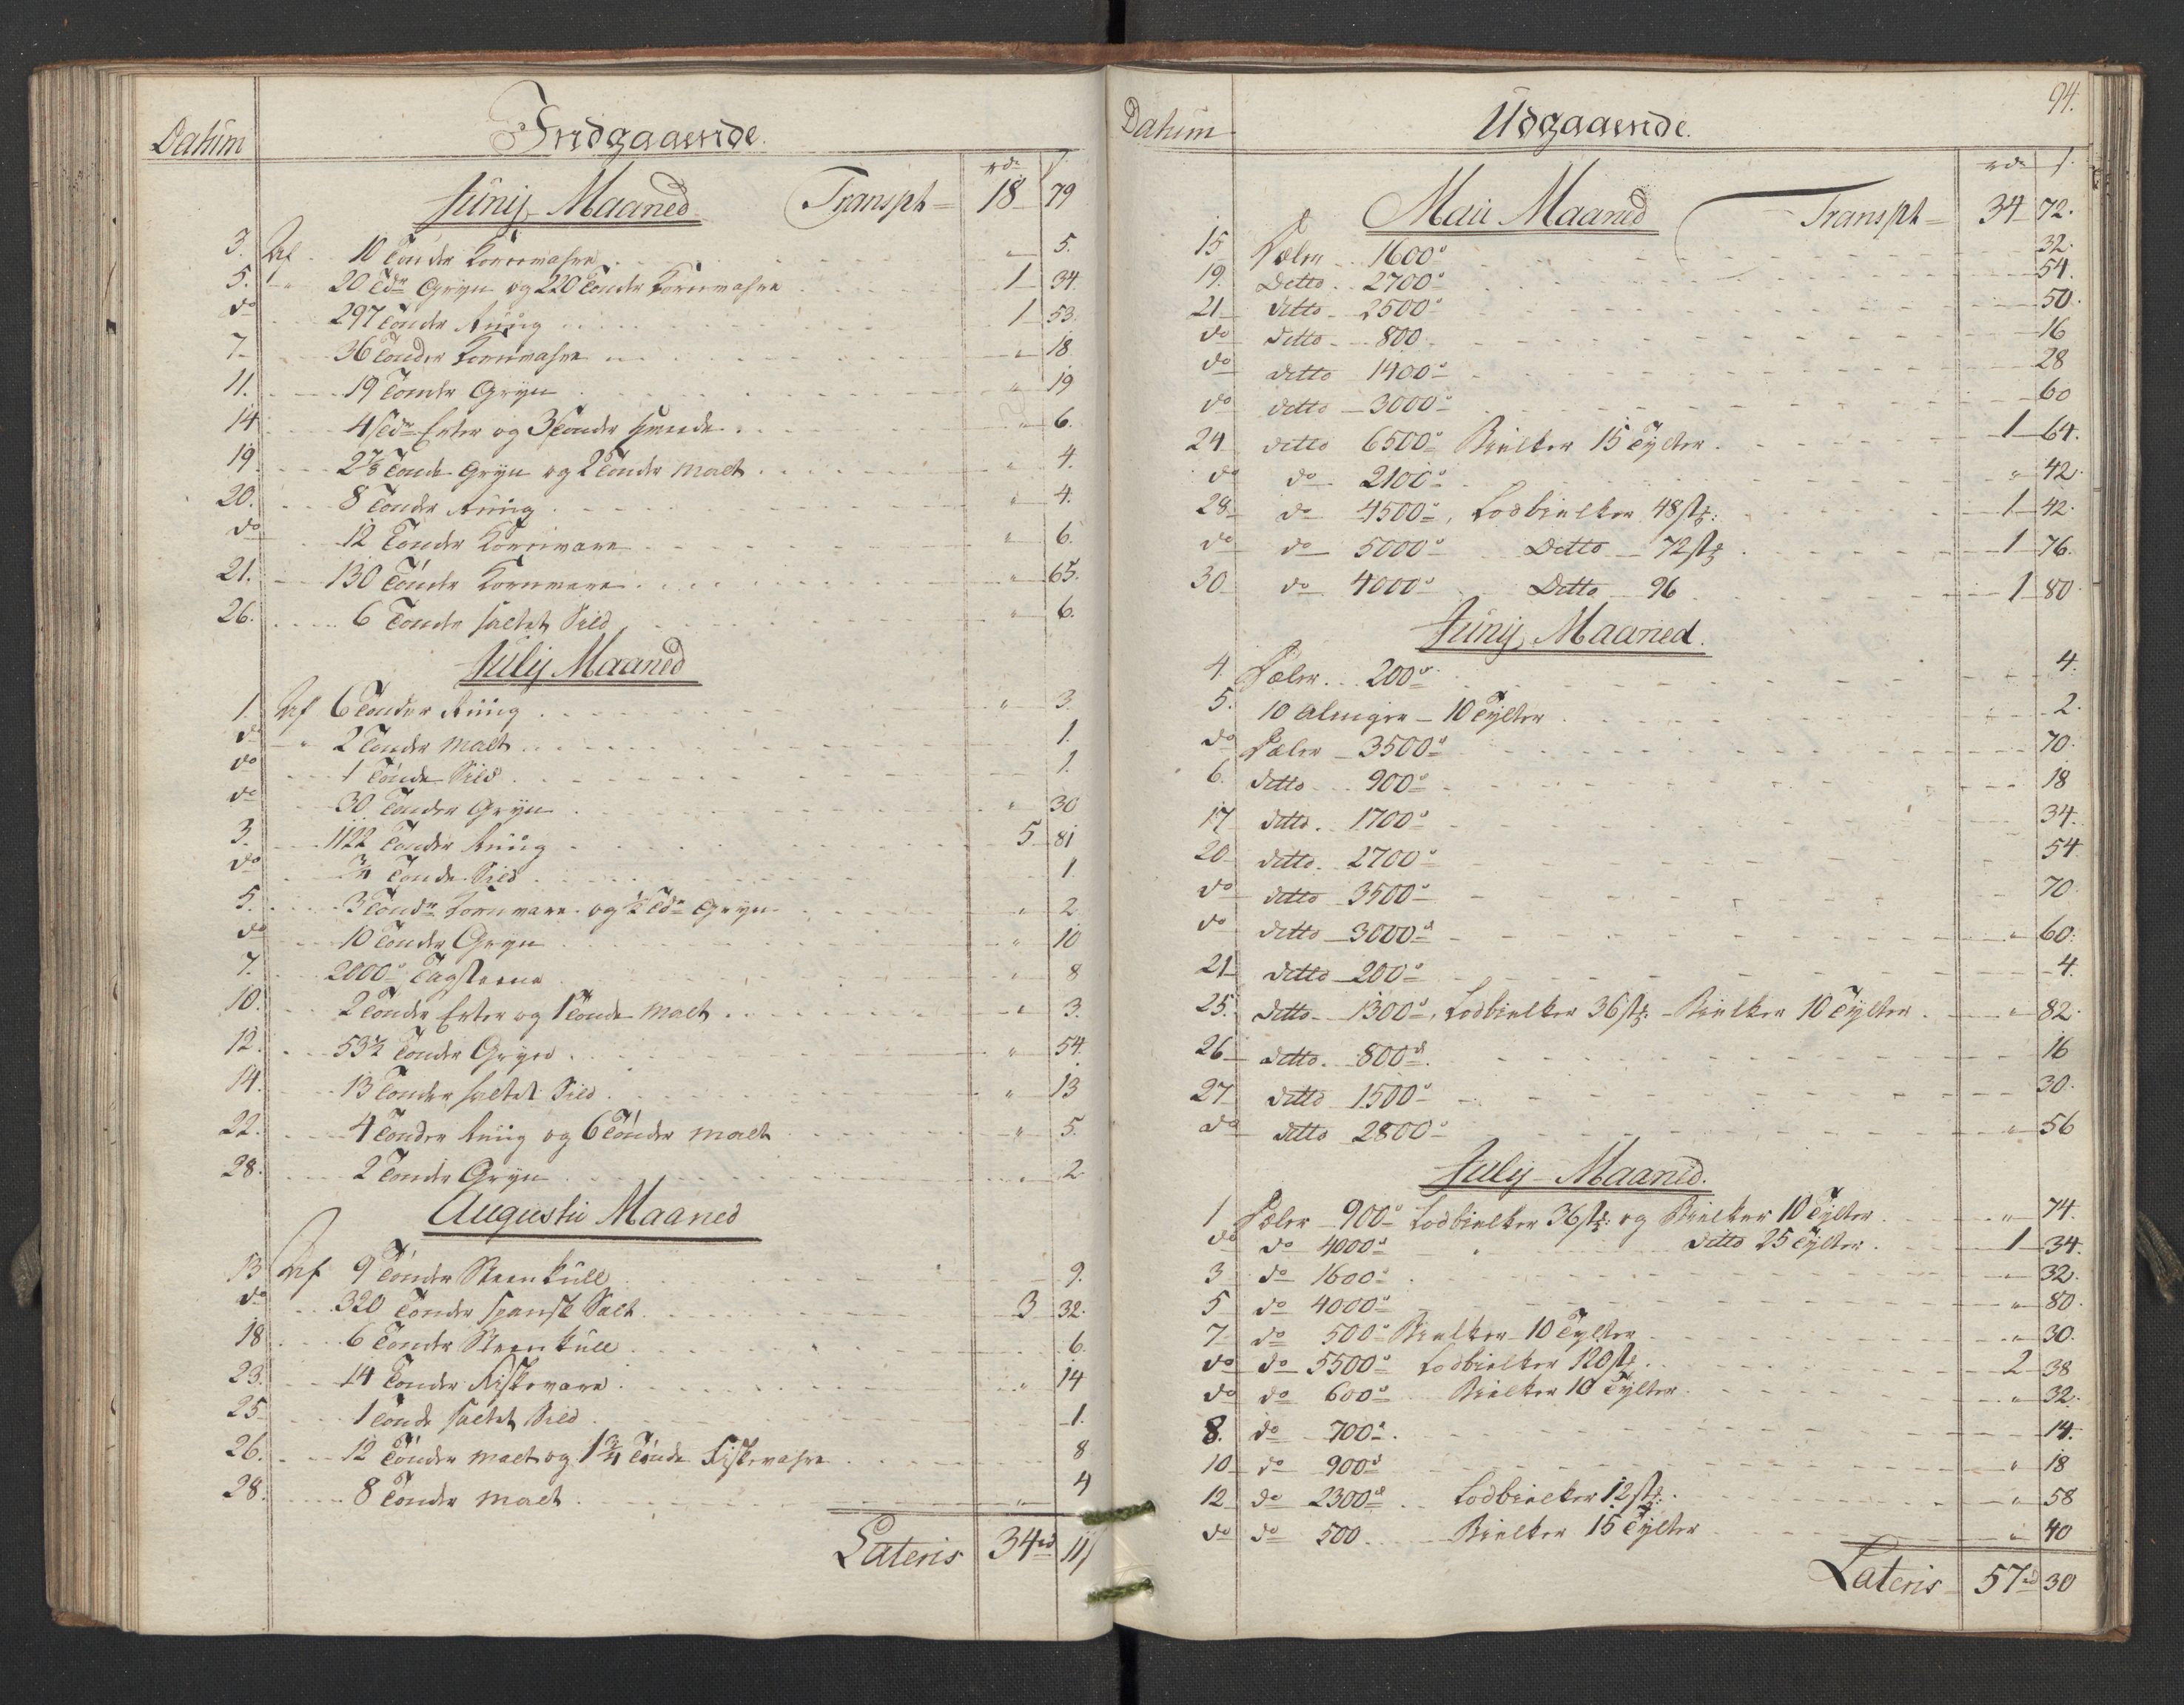 Datum Indgaaende.
rd s
Junij Maaned Transpt 18 79
3. Af 10 Tønder Kornvahre " 5.
5. " 20 Tdr Gryn og 220 Tønder Kornvahre 1 34.
do 297 Tønder Ruug 1 53.
7. 36 Tønder Kornvahre " 18
11. 19 Tønder Gryn " 19
14 4 Tdr Erter og 3 Tønder " 6.
19. 2 7/8 Tønde Gryn og 2 Tønder Malt " 4.
20. 8 Tønder Ruug " 4.
do 12 Tønder Kornvare " 6.
21. 130 Tønder Kornvare " 65.
26. 6 Tønde saltet Sild " 6.
Julij Maaned
1. Af 6 Tønder Ruug " 3.
do " 2 Tønder Malt 1.
do 1 Tønde Sild 1.
do 30 Tønder Gryn " 30
3. 1122 Tønder Ruug 5 81
do 3/4 Tønde Sild 1
5. 3 Tøndr Kornvare og 1/2 Tdr Gryn " 2
do 10 Tønder Gryn " 10
7. 2000de Tagsteene " 8
10. 2 Tønder Erter og 1 Tønde Malt " 3.
12. 53 1/2 Tønder Gryn " 54.
14. 13 Tønder saltet Sild " 13
22. 4 Tønder Ruug og 6 Tønder Malt " 5.
28. 2 Tønder Gryn " 2
Augustii Maaned
13 Af 9 Tønder Steenkull 9.
do 320 Tønder spansk Salt 3 32.
18 6 Tønder Steenkull 6.
23. 14 Tønder Fiskevare " 14
25 1 Tønde saltet Sild 1.
26. 12 Tønder Malt og 1 3/4 Tønde Fiskevahre 8
28. 8 Tønder Malt " 4
Lateris 34rd 11s
94.
Datum Udgaaende.
rd s
Maii Maaned Transpt 34 72.
15 Pæler 1600de 32.
19. Detto 2700de 54.
21 ditto 2500de 50.
do ditto 800 16
do ditto 1400de 28
do ditto 3000de 60
24 ditto 6500de Bielker 15 Tylter 1 64.
do do 2100de " 42
28 do 4500de, Lodbielker 48 stk: 1 42.
do do 5000de Ditto 72 stk 1 76.
30 do 4000de Ditto 96 1 80
Junij Maaned.
4. Pæler 200de 4.
5. 10 Alinger 10 Tylter 2.
do Pæler 3500de 70.
6. ditto 900de 18
17 ditto 1700de 34.
20 ditto 2700de 54
do ditto 3500de 70.
do ditto 3000de " 60.
21 ditto 200de 4.
25. ditto 1300de, Lodbielker 36 stk: Bielker 10 Tylter " 82.
26 ditto 800de 16
27 ditto 1500de 30.
do ditto 2800de " 56
Julij Maaned.
1 Pæler 900de Lodbielker 36 stk: og Bielker 10 Tylter " 74.
do do 4000de " ditto 25 Tylter 1 34.
3 do 1600de " 32.
5 do 4000de " 80.
7 do 500de Bielker 10 Tylter " 30.
do do 5500de Lodbielker 120 stk 2 38
do do 600de Bielker 10 Tylter " 32.
8. do 700de 14.
10 do 900de " 18
12 do 2300de Lodbielker 12 stk: " 58
do do 500 Bielker 15 Tylter " 40
Lateris 57rd 30